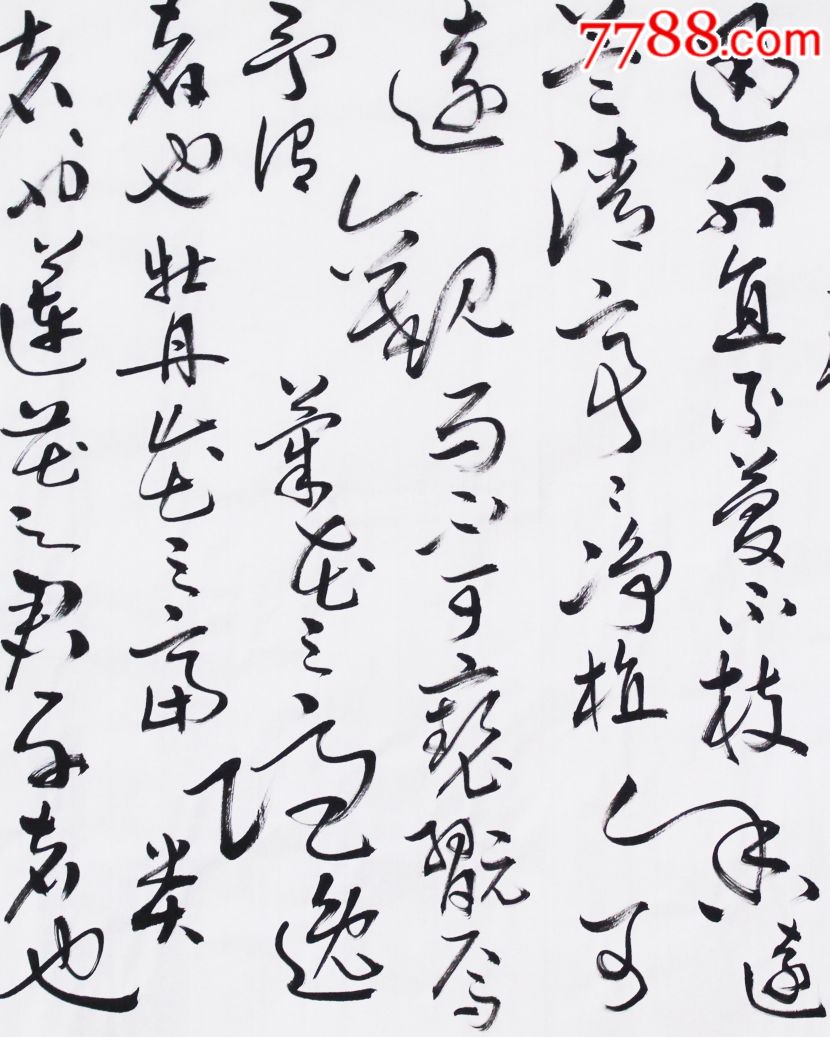 7788.com
通外直不蔓不枝香遠
益清亭〻净植可
遠觀而不可褻翫焉
予謂菊花之隱逸
者也牡丹花之富貴
者也蓮花之君子者也